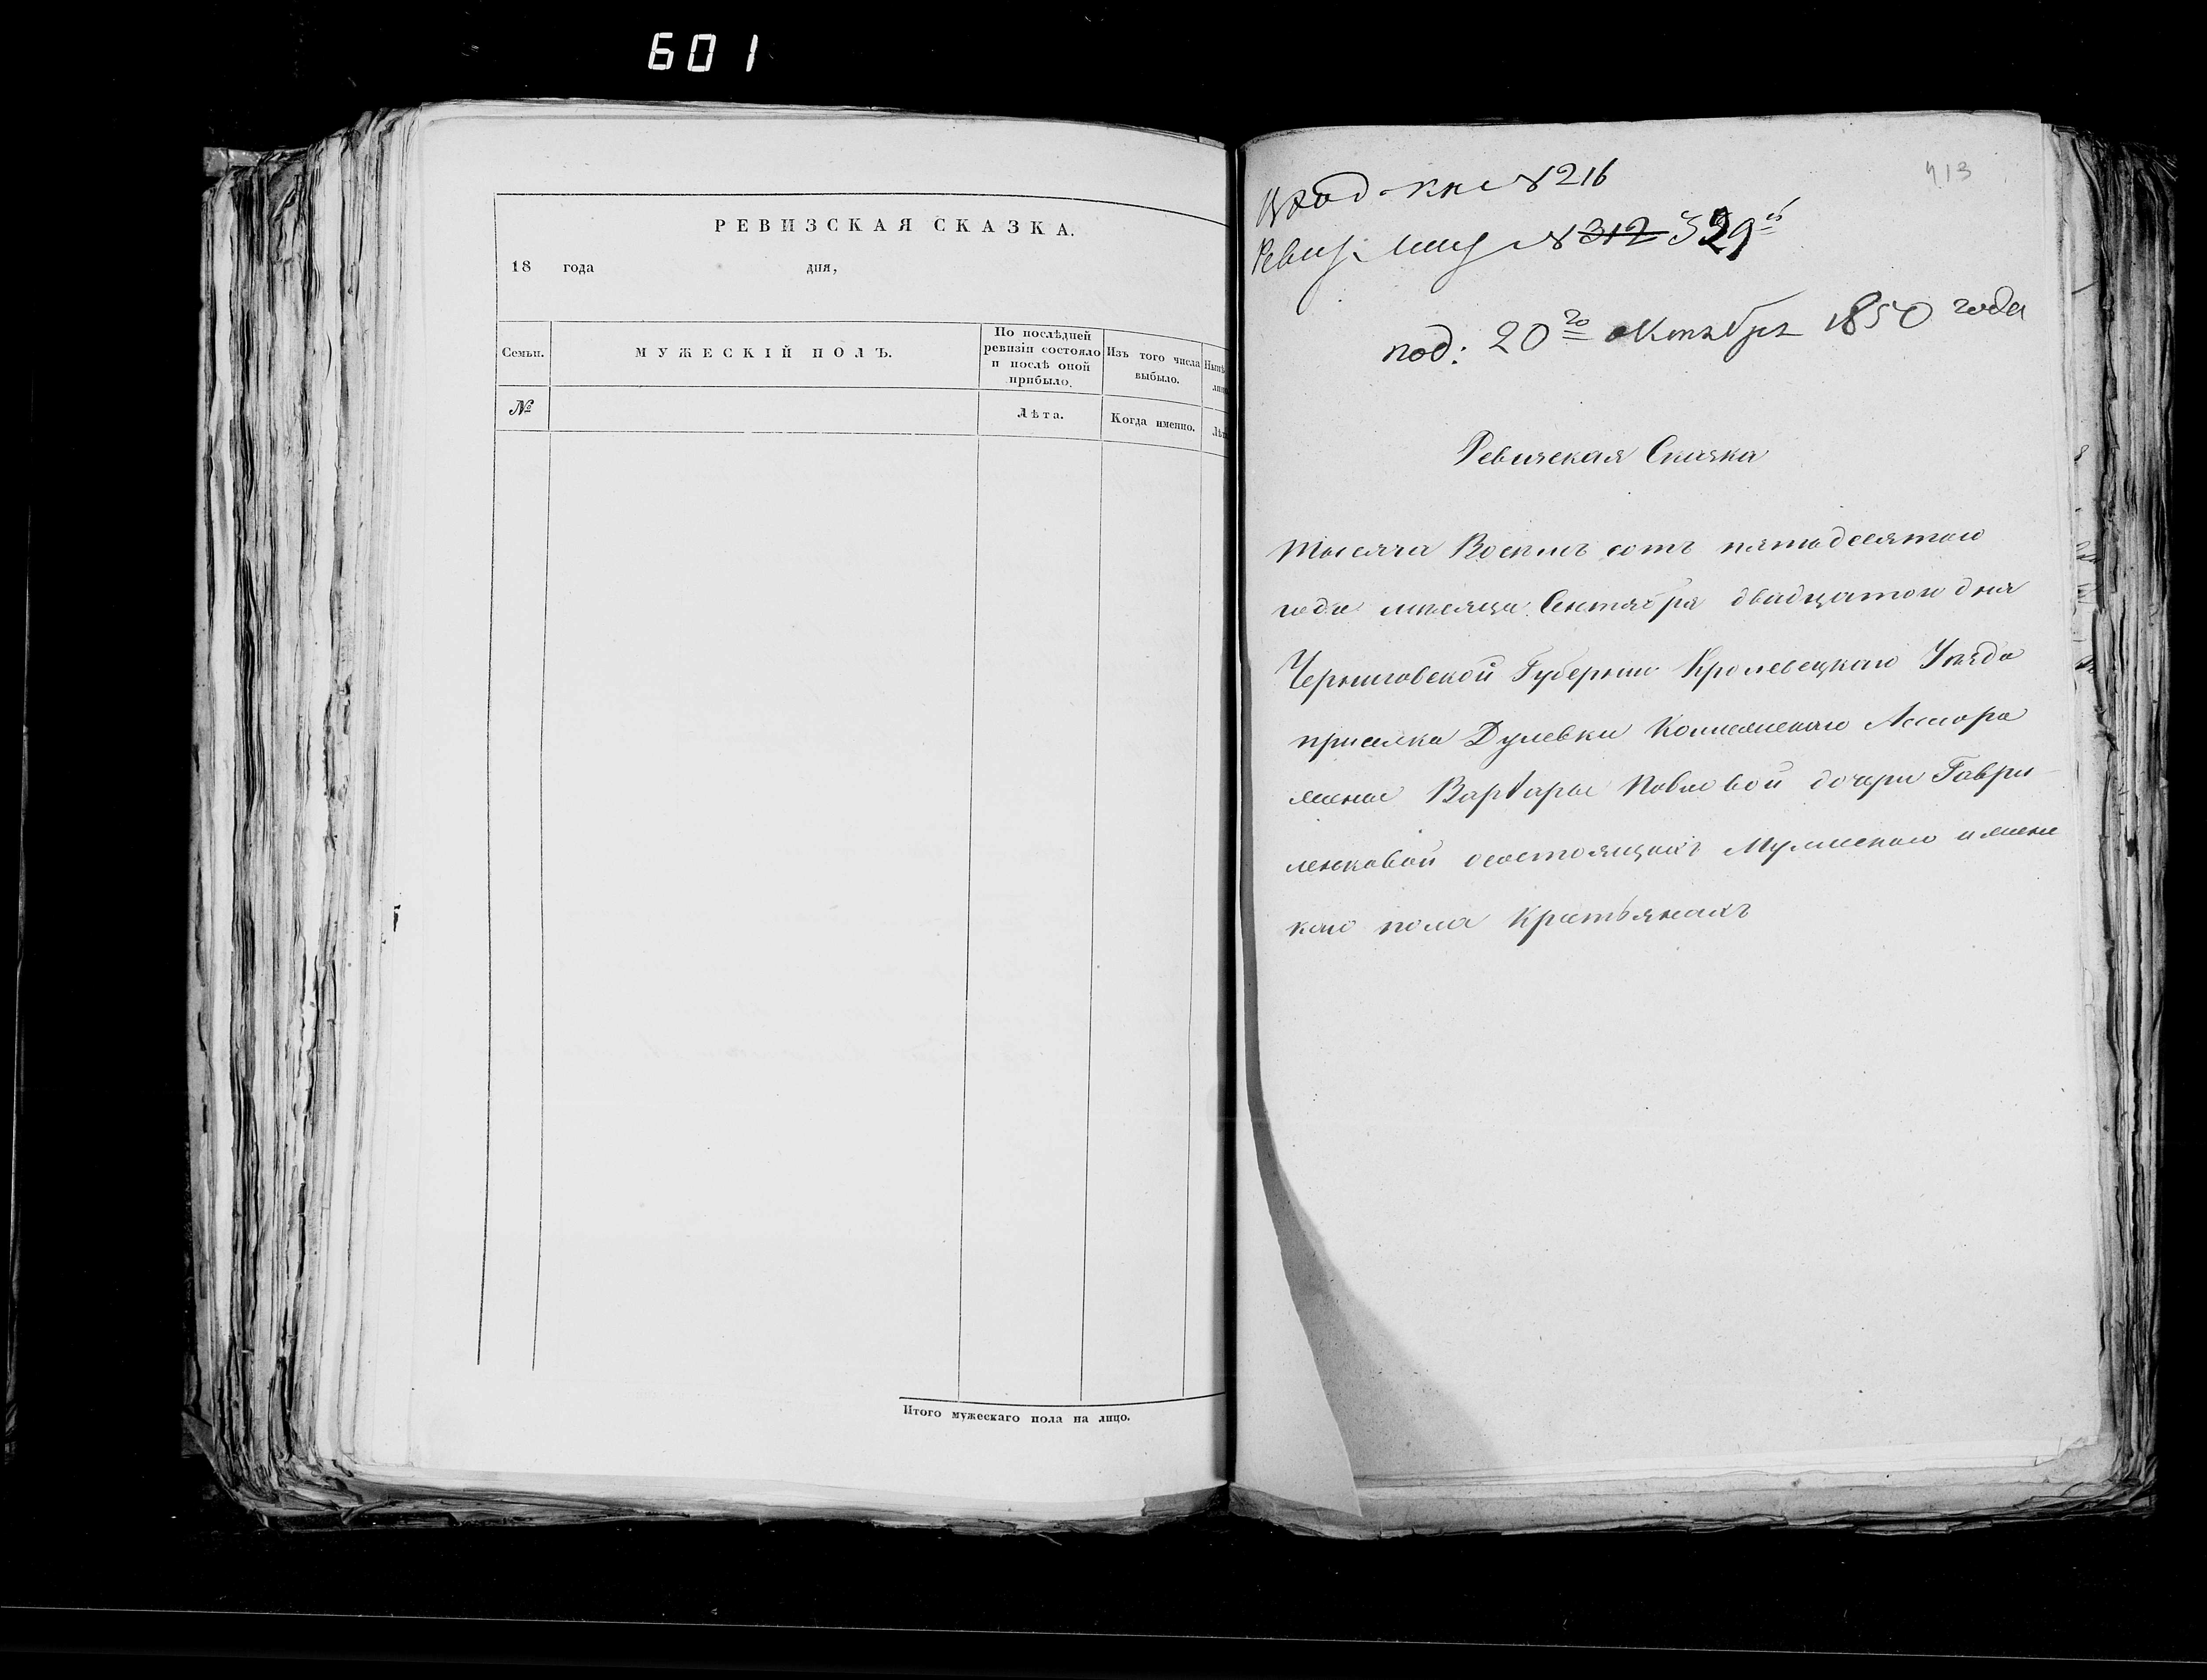 601
РЕВИЗСКАЯ СКАЗКА.
18 года дня,
Семьи.
МУЖЕСКІЙ ПОЛЪ.
По послѣдней
ревизіи состояло
и послѣ оной
прибыло.
Изъ того числа
выбыло.
№
Лѣта.
Когда именно.
Итого мужескаго пола на лицо.
413
Вход. кн. №216
Ревиз. №312 329
под: 20го октября 1850 года
Ревизская Сказка
Тысяча Восемь сотъ пятьдесятого
года месяца Сентября двадцатого дня
Черниговской Губерніи Кролевецкаго Уезда
приселка Дулевки
жены Варвары Павловой дочери Гаври-
ленковой о состоящихъ Мужеского и женс
кого пола Крестьянахъ